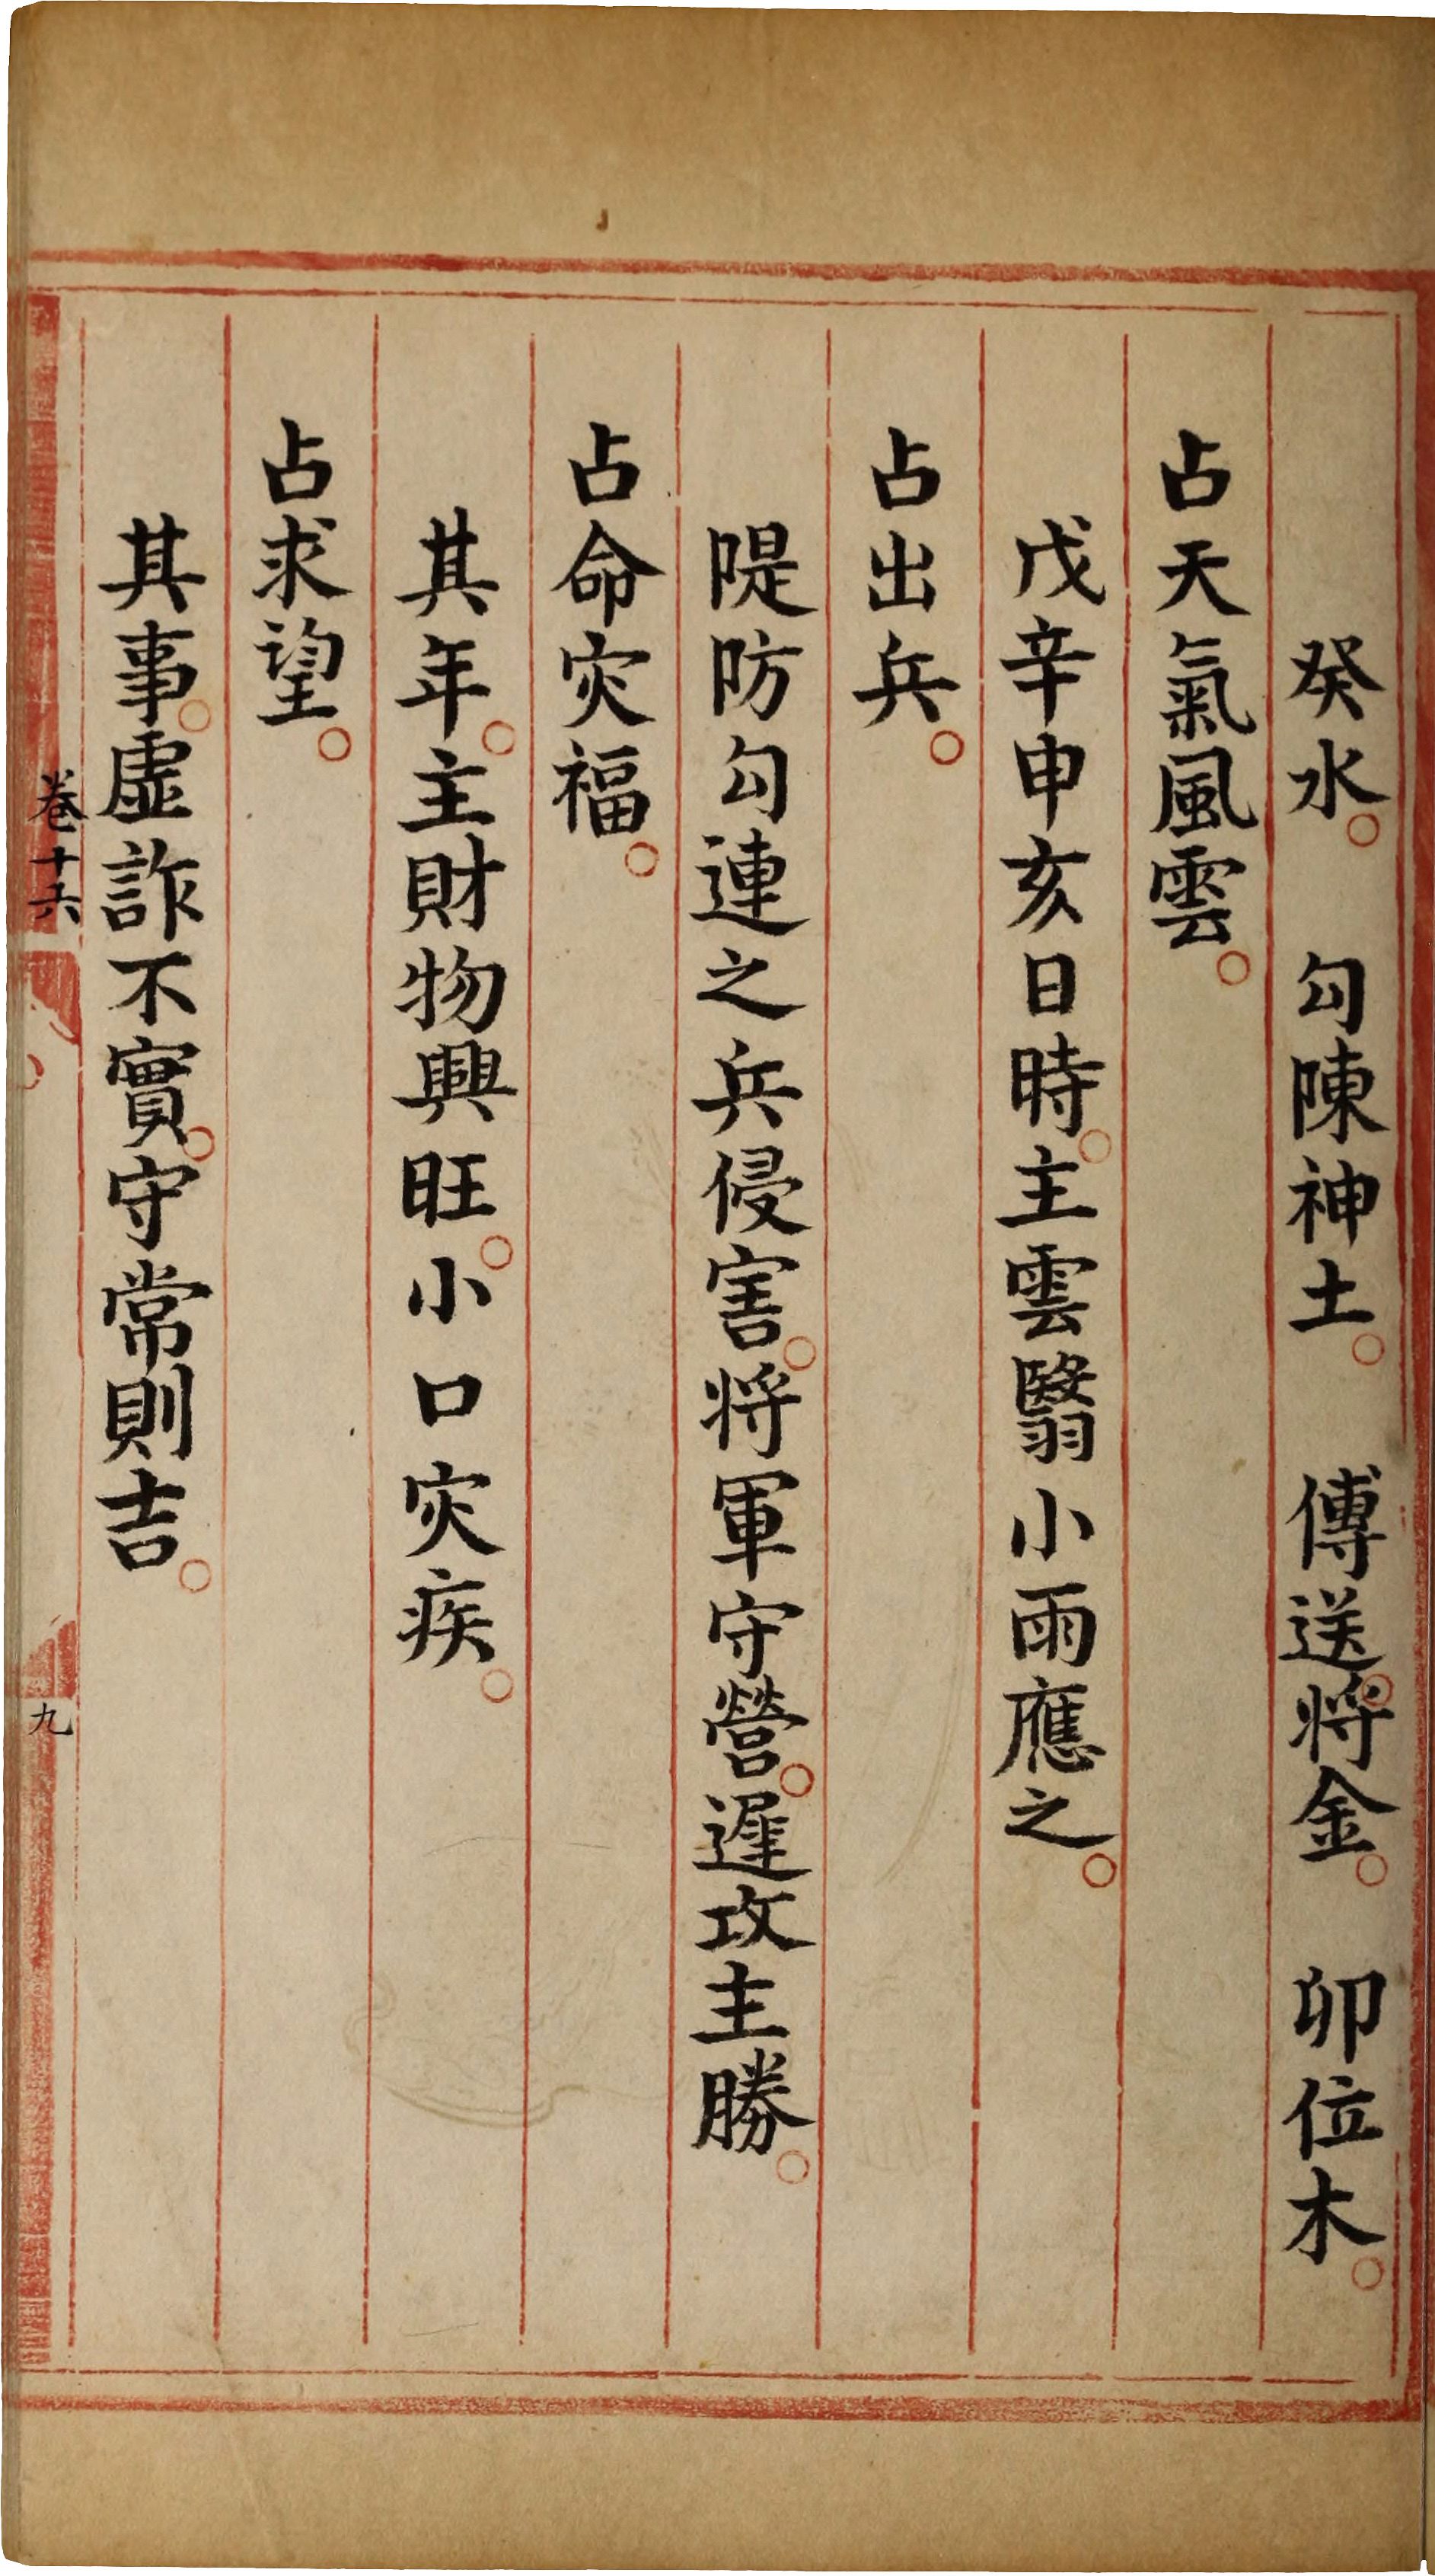 癸水。　勾陳神土。　傳送。将金。　卯位木。
占天氣風雲。
戊辛申亥日時。主雲翳小雨應之。
占出兵。
隄防勾連之兵侵害。将軍守營。遲攻主勝。
占命灾福。
其年。主財物興旺。小口灾疾。
占求望。
其事。虛詐不實。守常則吉。
卷十六
九